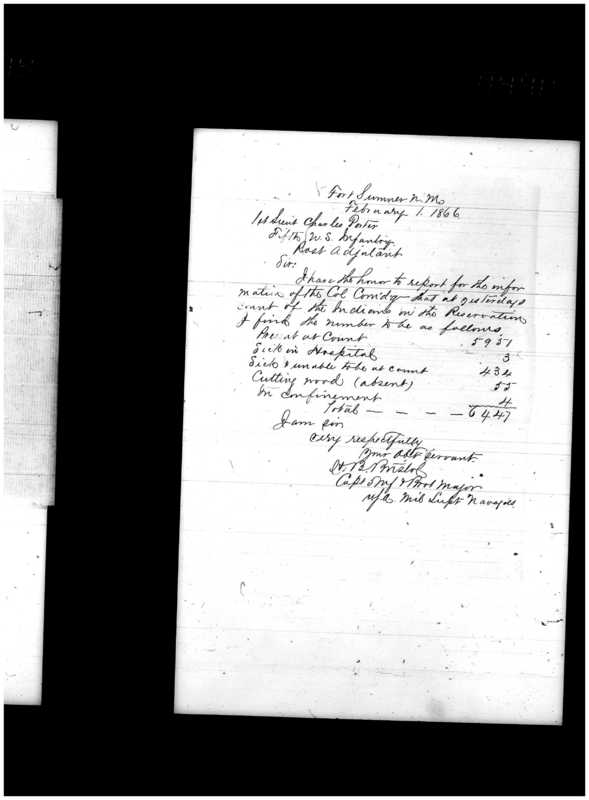 Fort Sumner N. M.
February 1. 1866
1st Lieut Charles Porter
Fifth U.S. Infantry
Post Adjutant
Sir:
I have the honor to report for the infor
mation of the Col Comdg that at yesterdays
count of the Indians on the Reservation
I find the number to be as follows
Present at Count 5951
Sick in Hospital 3
Sick & unable to be at count 434
Cutting wood (absent) 55
In confinement 4
Total — — — — 6447
I am sir
very respectfully
Your obt servant.
H. B. Bristol
Capt 5 Inf & Bvt Major
Mil Supt Navajoes